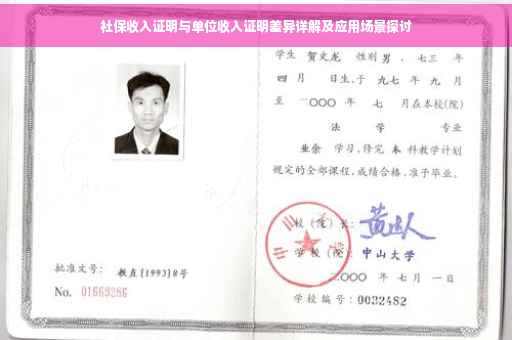 社保收入证明与单位收入证明差异详解及应用场景探讨
学生 贺文龙 性别 男 、七三 年
四 月 日生,于 九七 年 九 月
至 二〇〇〇 年 七 月在本校(院)
法 学 专业
业余 学习,修完 本 科教学计划
规定的全部课程,成绩合格,准予毕业。
校(院)长:
学 校(院): 中山大学
二〇〇〇 年 七 月 一 日
学校编号:0032482
批准文号: 教直(1993)8号
No. 01669286